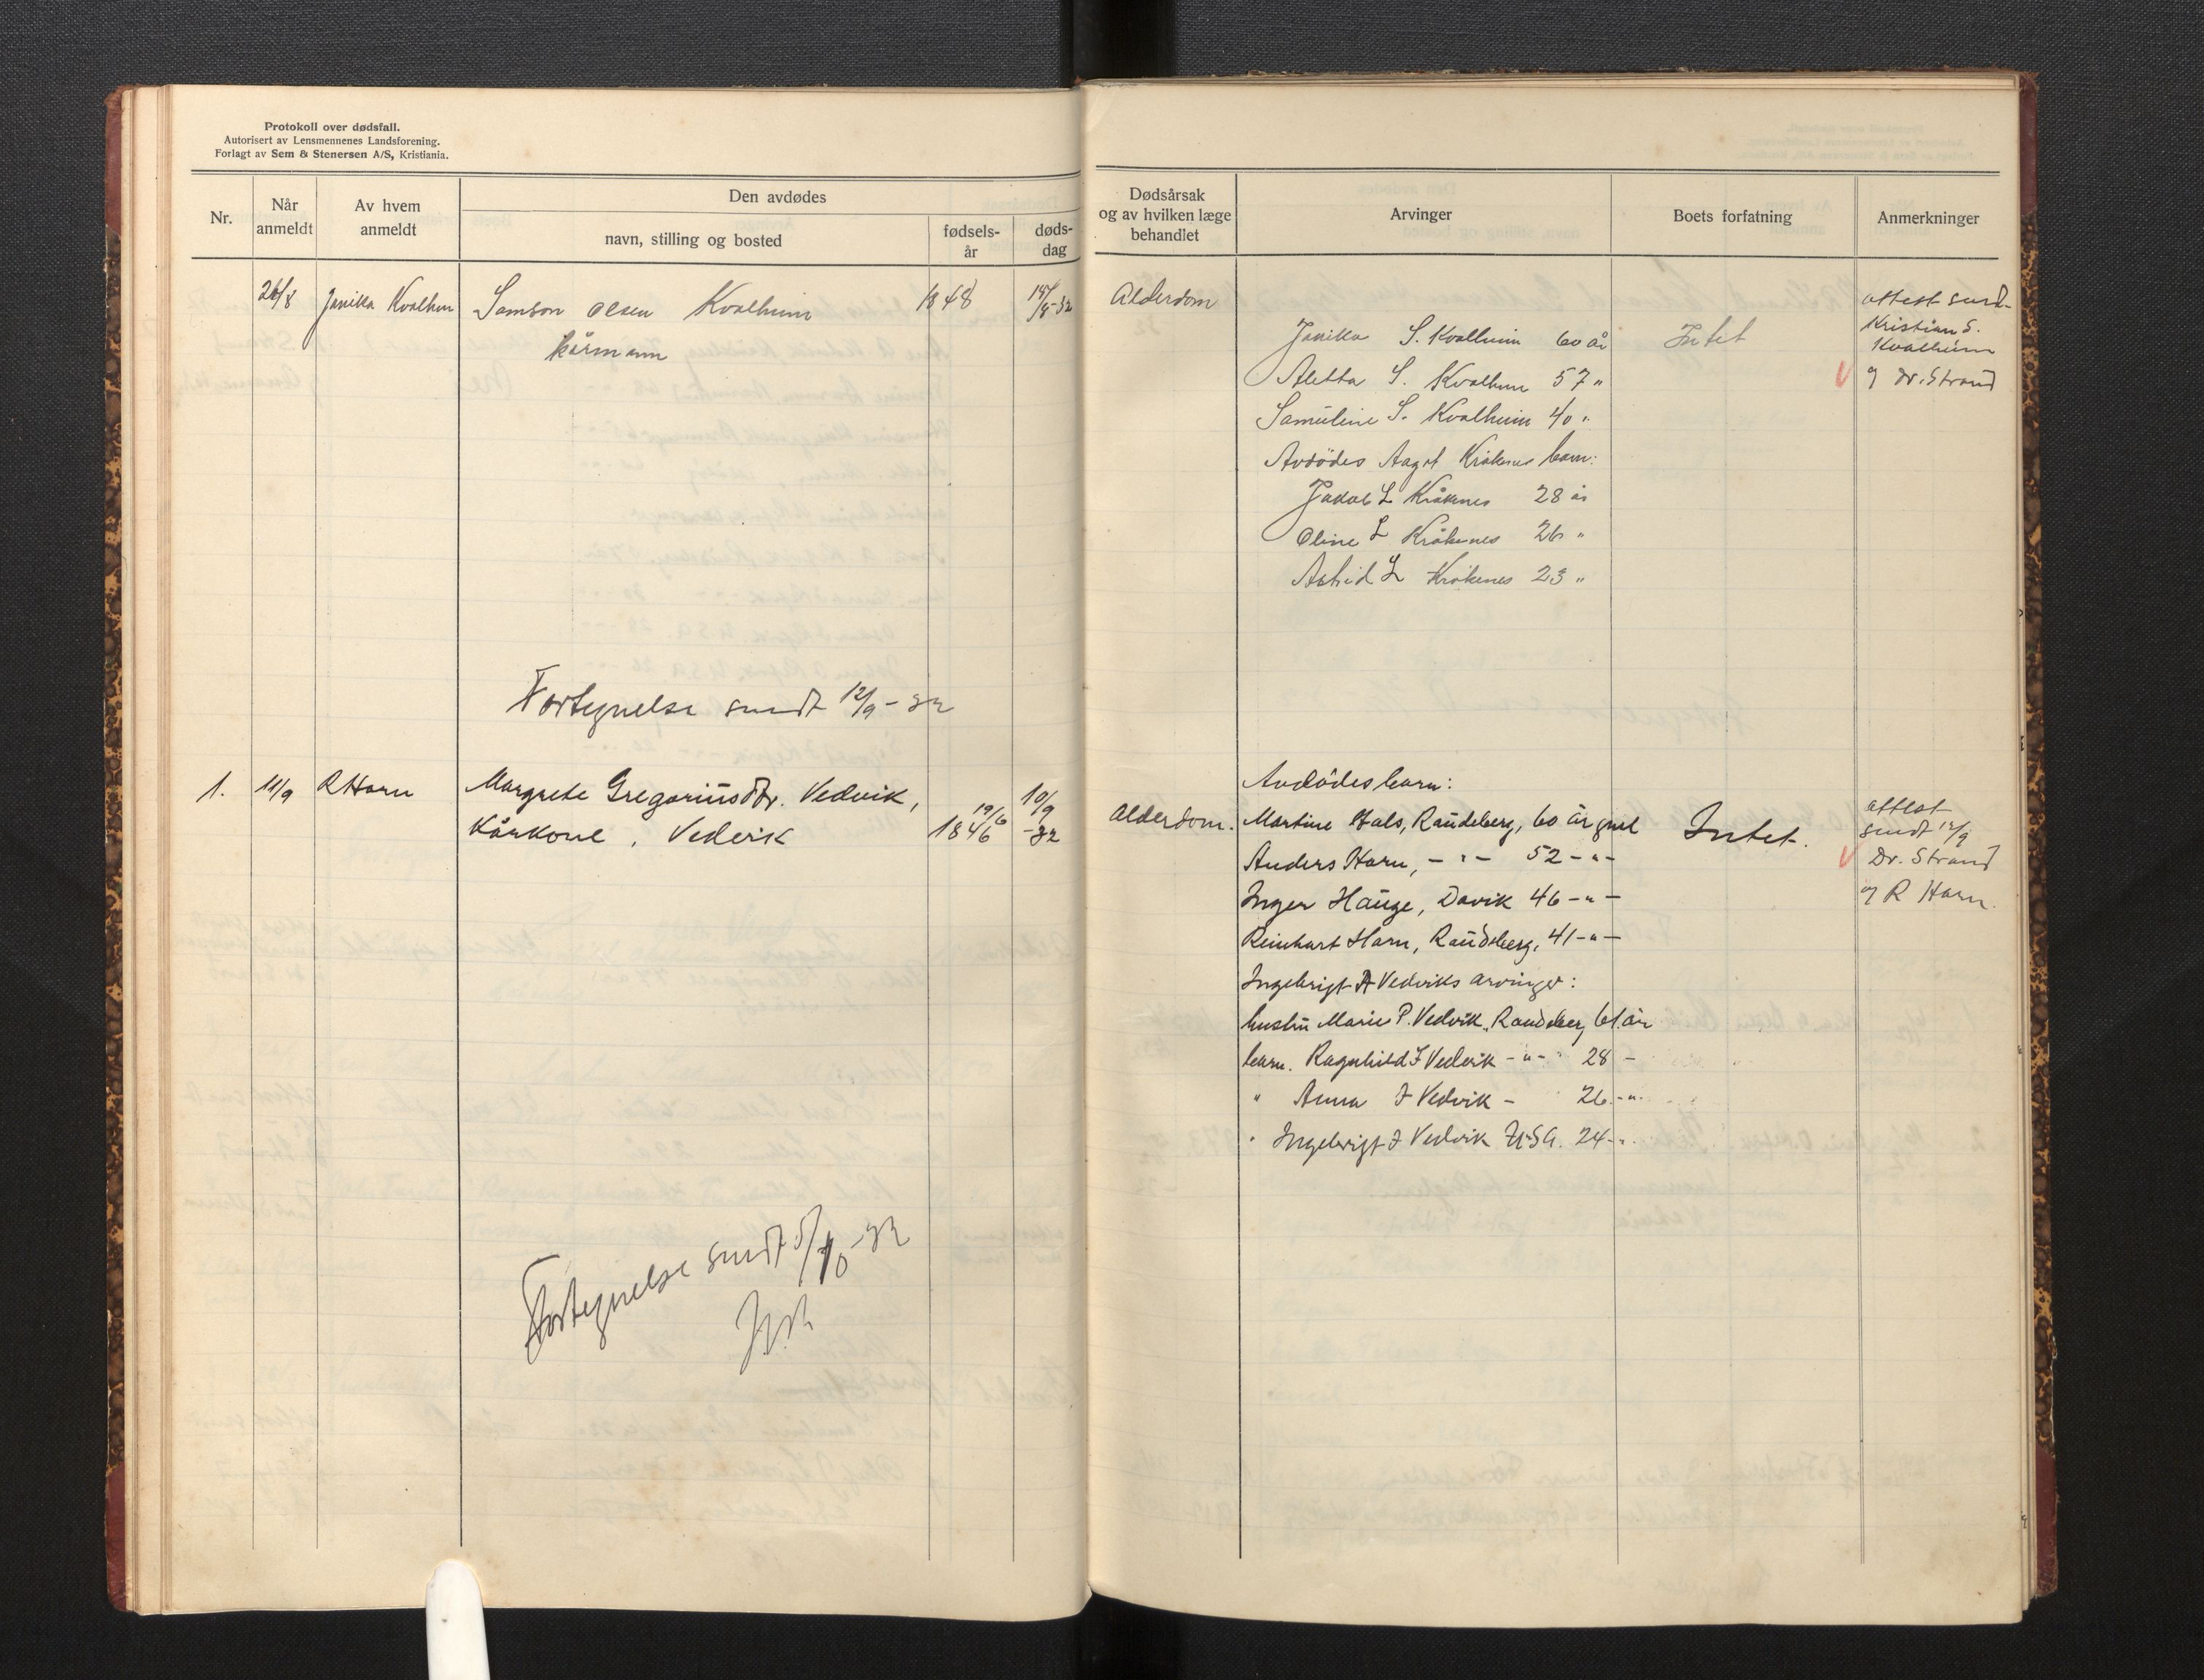 Protokoll over dødsfall.
Autorisert av Lensmennenes Landsforening.
Forlagt av Sem & Stenersen A/S, Kristiania.
Nr.
Når
anmeldt
Av hvem
anmeldt
Den avdødes
navn, stilling og bosted
fødsels-
år
døds-
dag
26/8 Janikka Kvalheim Samson Olsen Kvalheim 1848 15/8-32
kårmann
Fortegnelse sendt 12/9-32
1. 11/9 R Harn Margrete Gregoriusdtr. Vedvik, 19/6 1846 10/9 -32
Kårkone, Vedvik
Fortegnelse sendt 5/10-32
Dødsårsak
og av hvilken læge
behandlet
Arvinger
Boets forfatning
Anmerkninger
Alderdom
Janikka S. Kvalheim 60 år
Aletta S. Kvalheim 57 "
Samuline S. Kvalheim 40 "
Avdødes Aagot Kråkenes barn:
Jakob L Kråkenes 28 år
Oline L Kråkenes 26 "
Astrid L Kråkenes 23 "
Intet
attest send-
Kristian S.
Kvalheim
V og Dr. Strand
Alderdom.
Avdødes barn:
Martine Hals, Raudeberg, 60 år gml
Anders Harn, - " - 52 - " -
Inger Hauge, Davik 46 - " -
Reinhart Harn, Raudeberg, 41 - " -
Ingebrigt A Vedviks arvinger:
hustru Marie P. Vedvik, Raudeberg 61 år
barn. Ragnhild I Vedvik - " - 28 -
" Anna I Vedvik - 26 - " -
" Ingebrigt I Vedvik USA. 24 - "
Intet.
attest
sendt 12/9
V Dr. Strand
og R Harn.